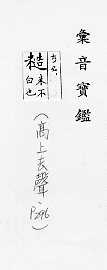 彙音寶鑑
糙
米不
白也
(高上去聲、P296)